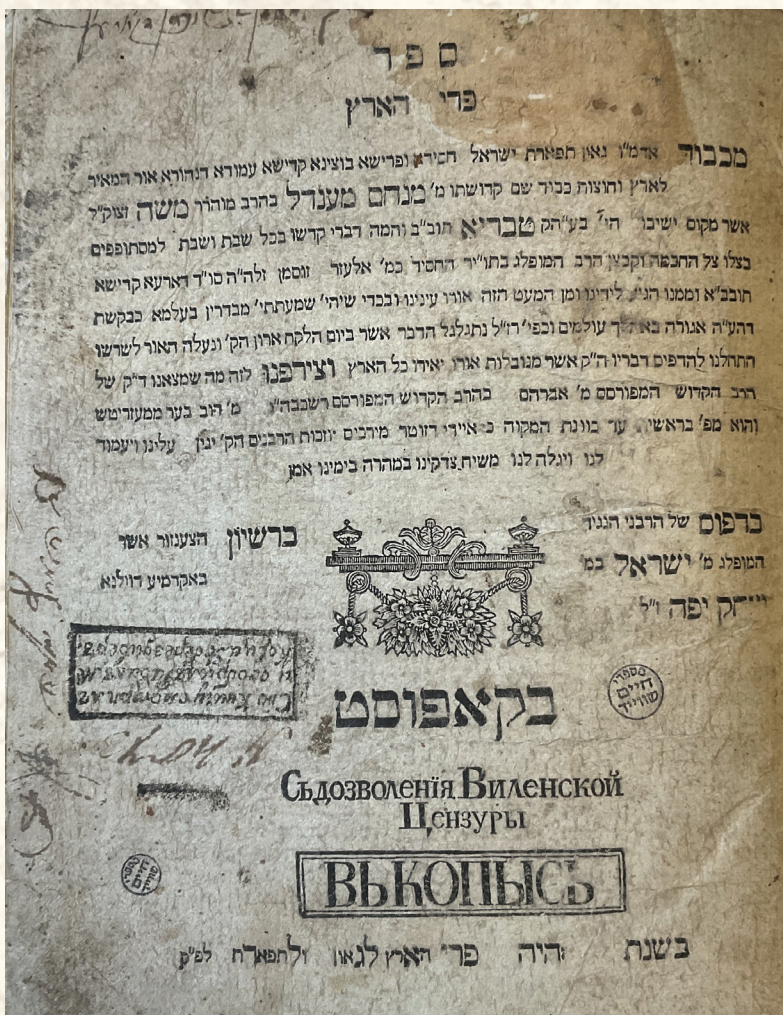 ספר
פרי הארץ
מכבוד אדמ״ו גאון תפארת ישראל חסידא ופרישא בוצינא קדישא עמודא דנהורא אור המאיר
לארץ וחוצות כבוד שם קדושתו מ׳ מנחם מענדל בהרב מוהור״ר משה זצוק״ל
אשר מקום ישיבו׳ הי׳ בע״הק טבריא תוב״ב והמה דברי קדשו בכל שבת ושבת למסתופפים
בצלו צל החכמה וקבצן הרב המופלג בתו״יר החסיד כמ׳ אלעזר זוסמן זלה״ה סו״ד דארעא קדישא
תובב״א וממנו הגיע לידינו ומן המעט הזה אורו עינינו ובכדי שיהי׳ שמעתתי׳ מבדרין בעלמא כבקשת
דהע״ה אגורה באהלך עולמים וכפי׳ רז״ל נתגלגל הדבר אשר ביום הלקח ארון הק׳ ונעלה האור לשרשו
התחלנו להדפיס דבריו ה״ק אשר מגובלות אורו יאירו כל הארץ וצירפנו לזה מה שמצאנו ד״ק של
הרב הקדוש המפורסם מ׳ אברהם בהרב הקדוש המפורסם רשכבה״ג מ׳ דוב בער ממעזריטש
והוא מפ׳ בראשית עד כוונת המקוה כ״ איידי דזוטר מירכים וזכות הרבנים הק׳ יגין עלינו ויעמוד
לנו ויגלה לנו משיח צדקינו במהרה בימינו אמן
בדפוס של הרבני הנגיד
המופלג מ׳ ישראל במ׳
יצחק יפה ז״ל
ברשיון הצענזור אשר
באקדמיע דווילנא
בקאפוסט
מספרי
חיים
שווייד
Съдозволенїя Виленской
Цензуры
ВЬКОПЫСЬ
מספרי
חיים
שווייד
בשנת והיה פרי הארץ לגאון ולתפארת לפ״ק